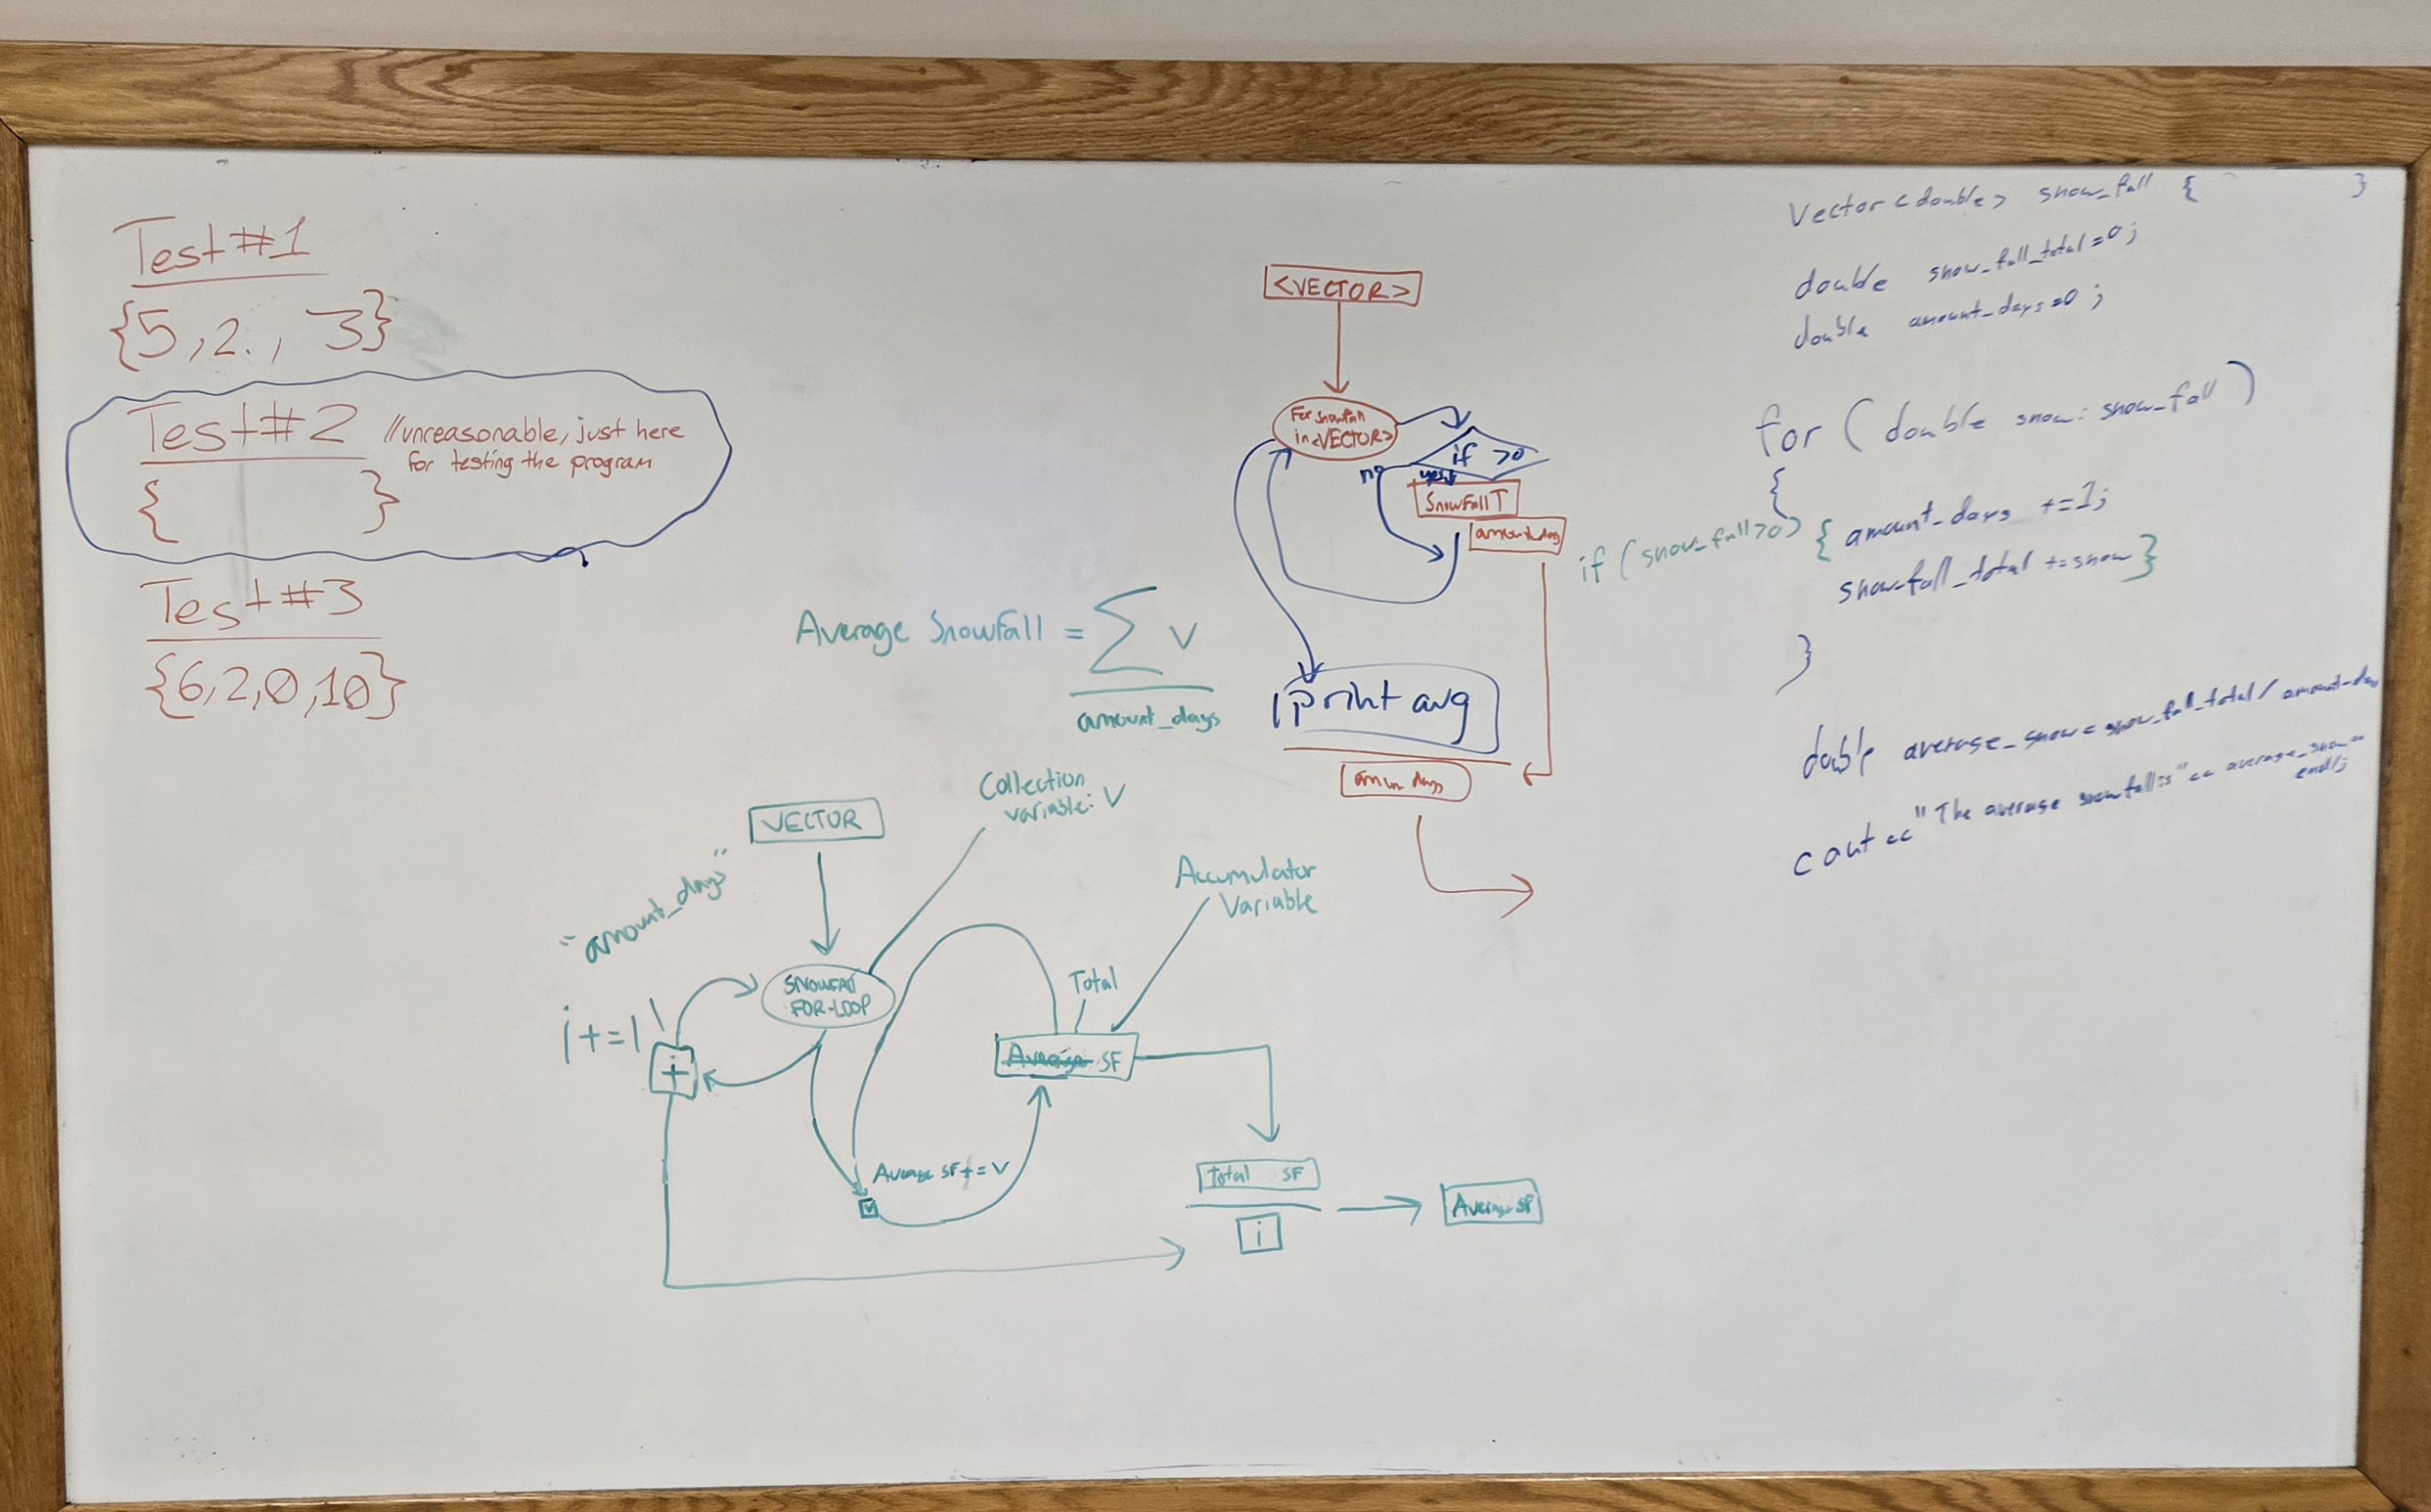 Test#1
{5,2., 3}
Test#2 //unreasonable, just here
for testing the program
{ }
Test#3
{6,2,0,10}
<VECTOR>
For snowfall
in <VECTOR>
if >0
no yes
SnowFall T
amount_day
Average Snowfall = ∑ V
amount_days
print avg
days
VECTOR
Collection
variable: V
"amount_days"
Accumulator
Variable
SNOWFALL
FOR-LOOP
i+=1
+
Total
Average SF
Average SF += V
Total SF
i
Average SF
Vector<double> snow_fall { }
double snow_fall_total=0;
double amount_days=0;
for (double snow: snow_fall)
{
if (snow_fall>0) { amount_days +=1;
snowfall_total +=snow }
}
double average_snow = snow_fall_total / amount_days
cout << "The average snowfall is" << average_snow <<
endl;